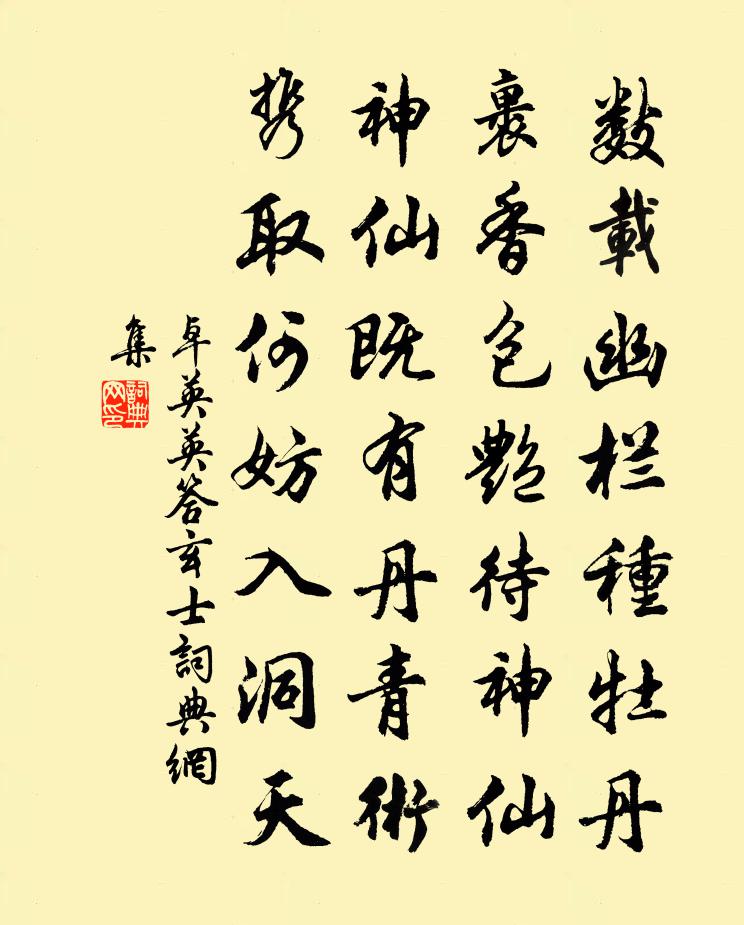 数載幽栏種牡丹
裹香包艷待神仙
神仙既有丹青術
携取何妨入洞天
卓英英答玄士詞典網
集
詞典
网印